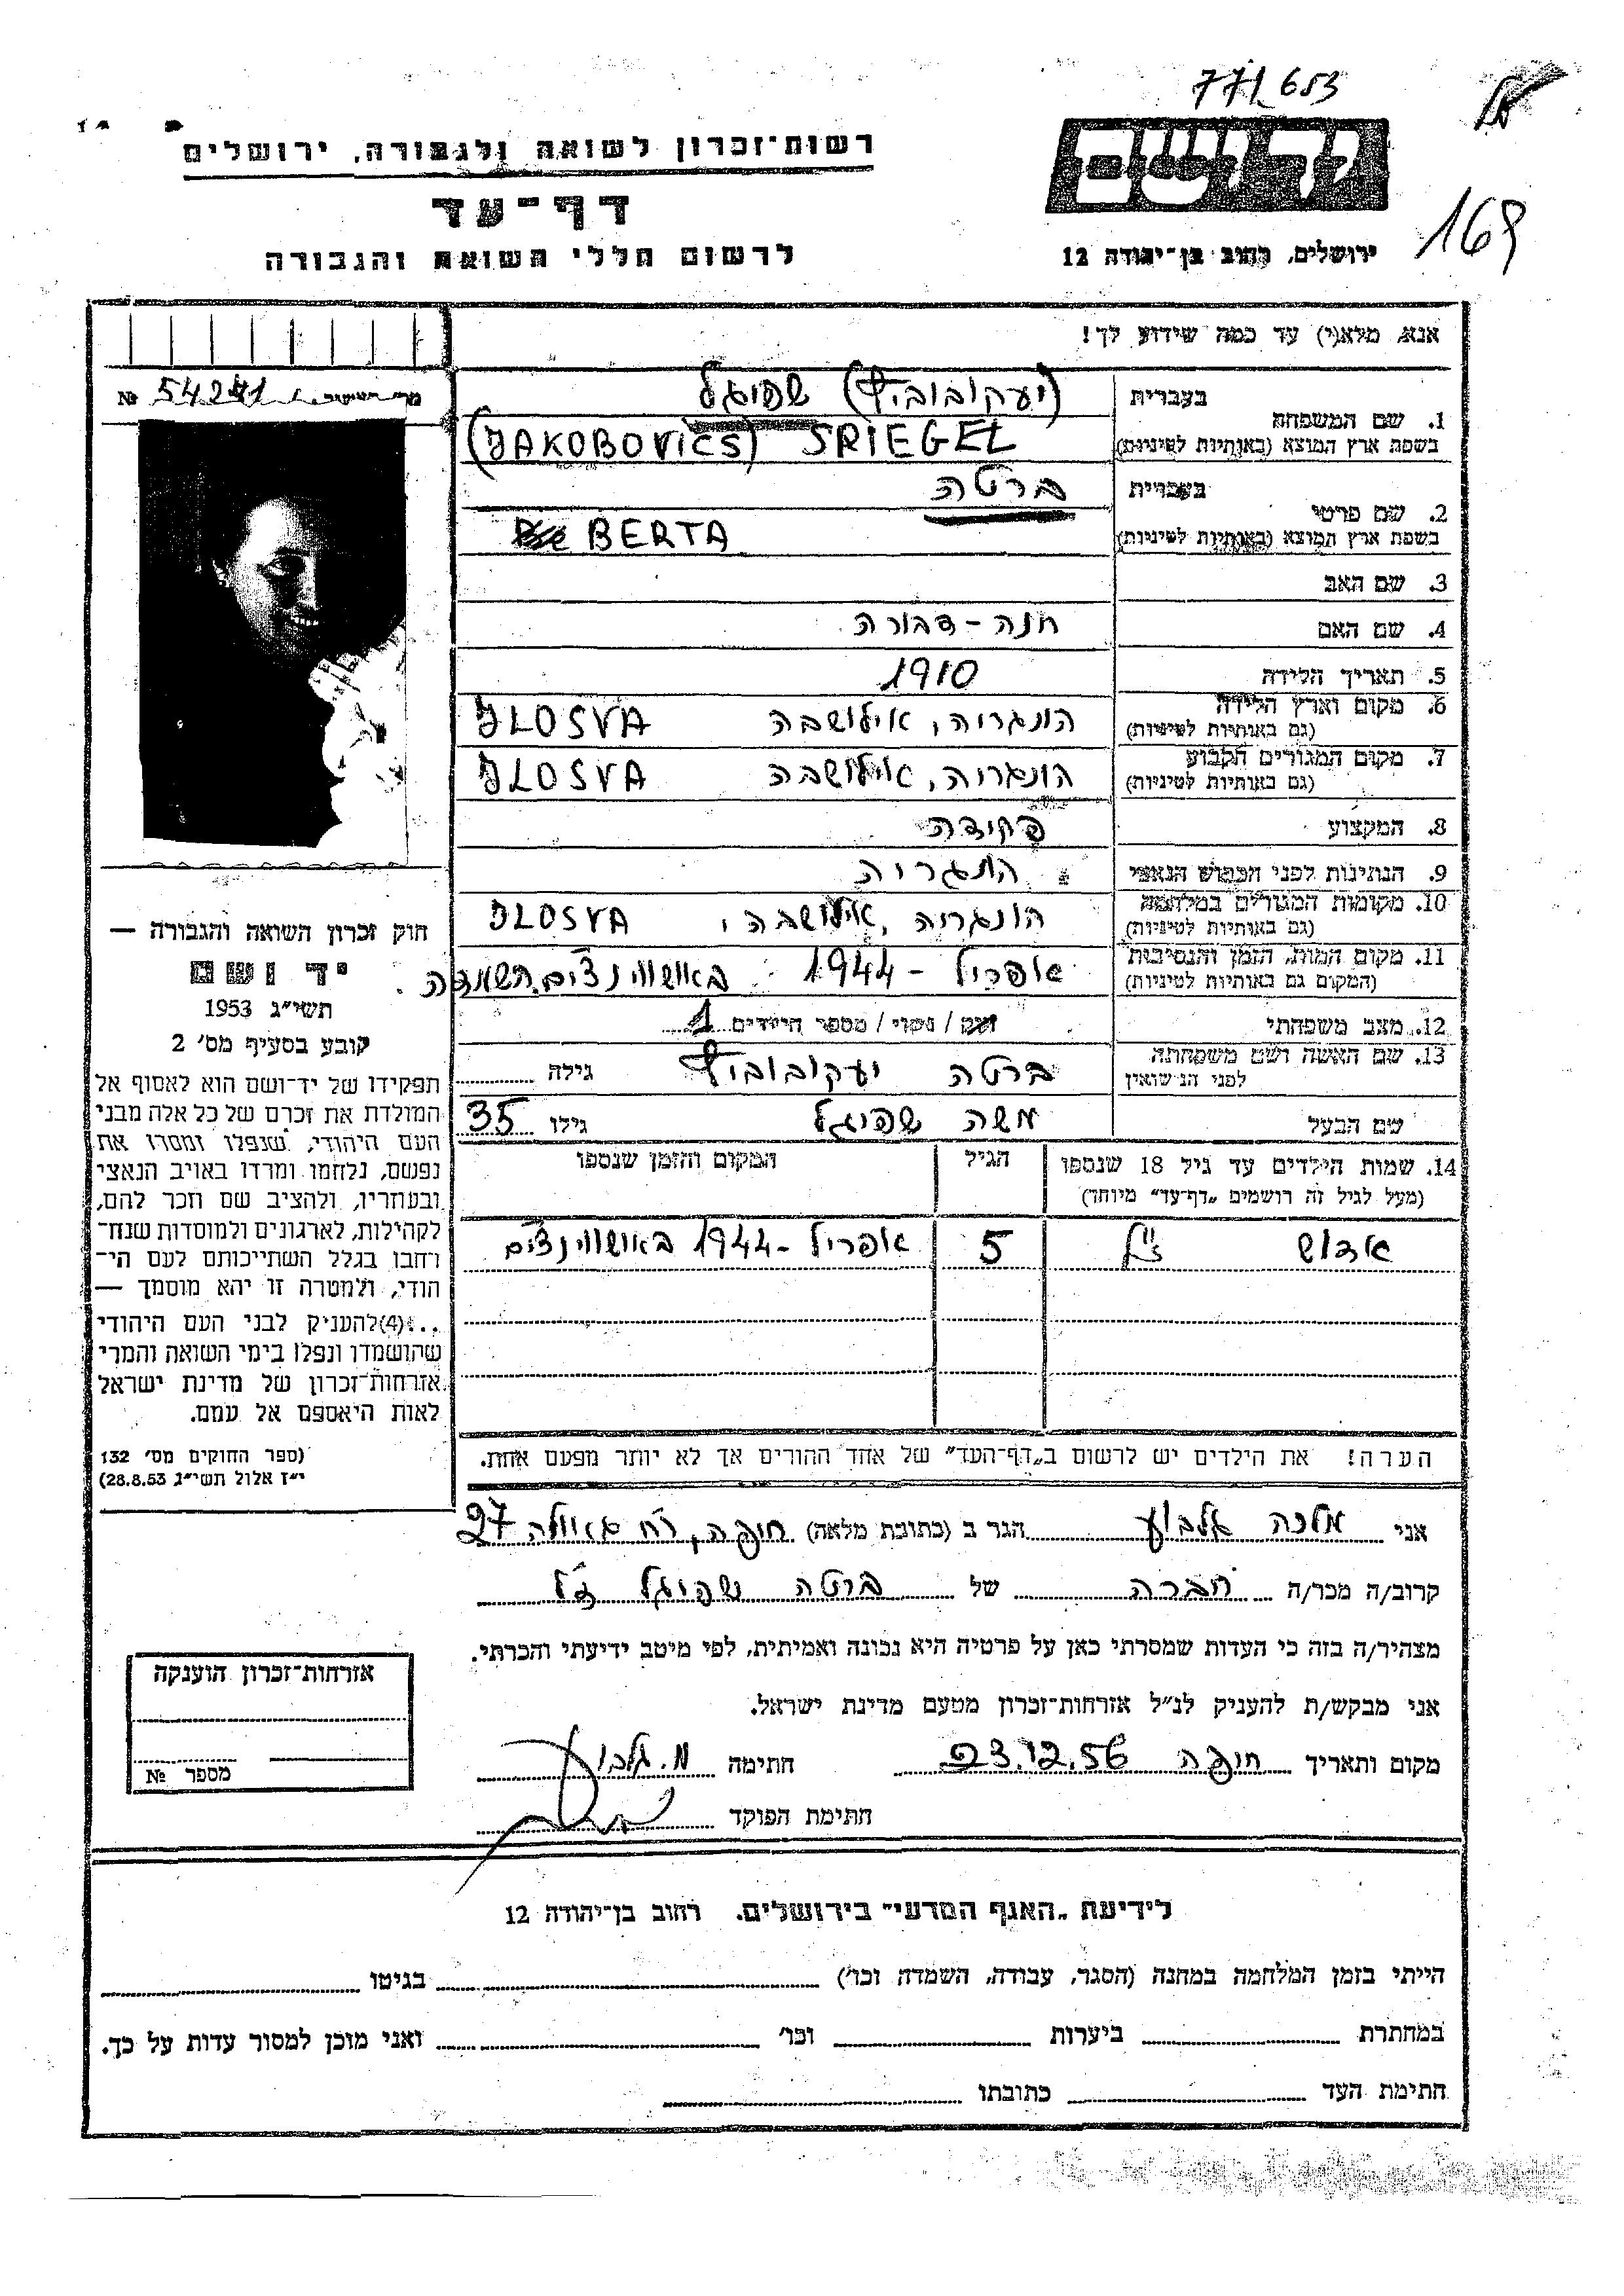 771653
169
רשות־זכרון לשואה ולגבורה, ירושלים
דף־עד
לרשום חללי השואה והגבורה
יד ושם
ירושלים, רחוב בן־יהודה 12
אנא, מלא(י) עד כמה שידוע לך!
№ 54241
1. שם המשפחה בעברית (יעקובוביץ) שפיגל
בשפת ארץ המוצא (באותיות לטיניות) (JAKOBOVICS) SPIEGEL
2. שם פרטי בעברית ברטה
בשפת ארץ המוצא (באותיות לטיניות) BERTA
3. שם האב
4. שם האם חנה - דבורה
5. תאריך הלידה 1910
6. מקום וארץ הלידה הונגריה, אילושבה JLOSVA
(גם באותיות לטיניות)
7. מקום המגורים הקבוע הונגריה, אילושבה JLOSVA
(גם באותיות לטיניות)
8. המקצוע פקידה
9. הנתינות לפני הכבוש הנאצי הונגריה
10. מקומות המגורים במלחמה הונגריה, אילושבה, JLOSVA
(גם באותיות לטיניות)
11. מקום המות, הזמן והנסיבות אפריל - 1944 באושווינצ'ים השמדה.
(המקום גם באותיות לטיניות)
12. מצב משפחתי רווק / נשוי / מספר הילדים 1
13. שם האשה ושם משפחתה ברטה יעקובוביץ גילה
לפני הנישואין
שם הבעל משה שפיגל גילו 35
14. שמות הילדים עד גיל 18 שנספו הגיל המקום והזמן שנספו
(מעל לגיל זה רושמים „דף־עד” מיוחד)
ז"ל 5 אפריל - 1944 באושווינצ'ים
הערה! את הילדים יש לרשום ב„דף־העד” של אחד ההורים אך לא יותר מפעם אחת.
חוק זכרון השואה והגבורה —
יד ושם
תשי״ג 1953
קובע בסעיף מס׳ 2
תפקידו של יד־ושם הוא לאסוף אל
המולדת את זכרם של כל אלה מבני
העם היהודי, שנפלו ומסרו את
נפשם, נלחמו ומרדו באויב הנאצי
ובעוזריו, ולהציב שם וזכר להם,
לקהילות, לארגונים ולמוסדות שנח־
רחבו בגלל השתייכותם לעם הי־
הודי, ולמטרה זו יהא מוסמך —
...(4) להעניק לבני העם היהודי
שהושמדו ונפלו בימי השואה והמרי
אזרחות־זכרון של מדינת ישראל
לאות היאספם אל עמם.
(ספר החוקים מס׳ 132
י״ז אלול תשי״ג 28.8.53)
אני מלכה הגר ב (כתובת מלאה) חיפה, רח' גאולה 27
קרוב/ה מכר/ה חברה של ברטה שפיגל ז"ל
מצהיר/ה בזה כי העדות שמסרתי כאן על פרטיה היא נכונה ואמיתית, לפי מיטב ידיעתי והכרתי.
אני מבקש/ת להעניק לנ״ל אזרחות־זכרון מטעם מדינת ישראל.
מקום ותאריך חיפה 23.12.56 חתימה
חתימת הפוקד
אזרחות־זכרון הוענקה
מספר №
לידיעת „האגף המדעי” בירושלים. רחוב בן־יהודה 12
הייתי בזמן המלחמה במחנה (הסגר, עבודה, השמדה וכו׳) בגיטו
במחתרת ביערות וכו׳ ואני מוכן למסור עדות על כך.
חתימת העד כתובתו